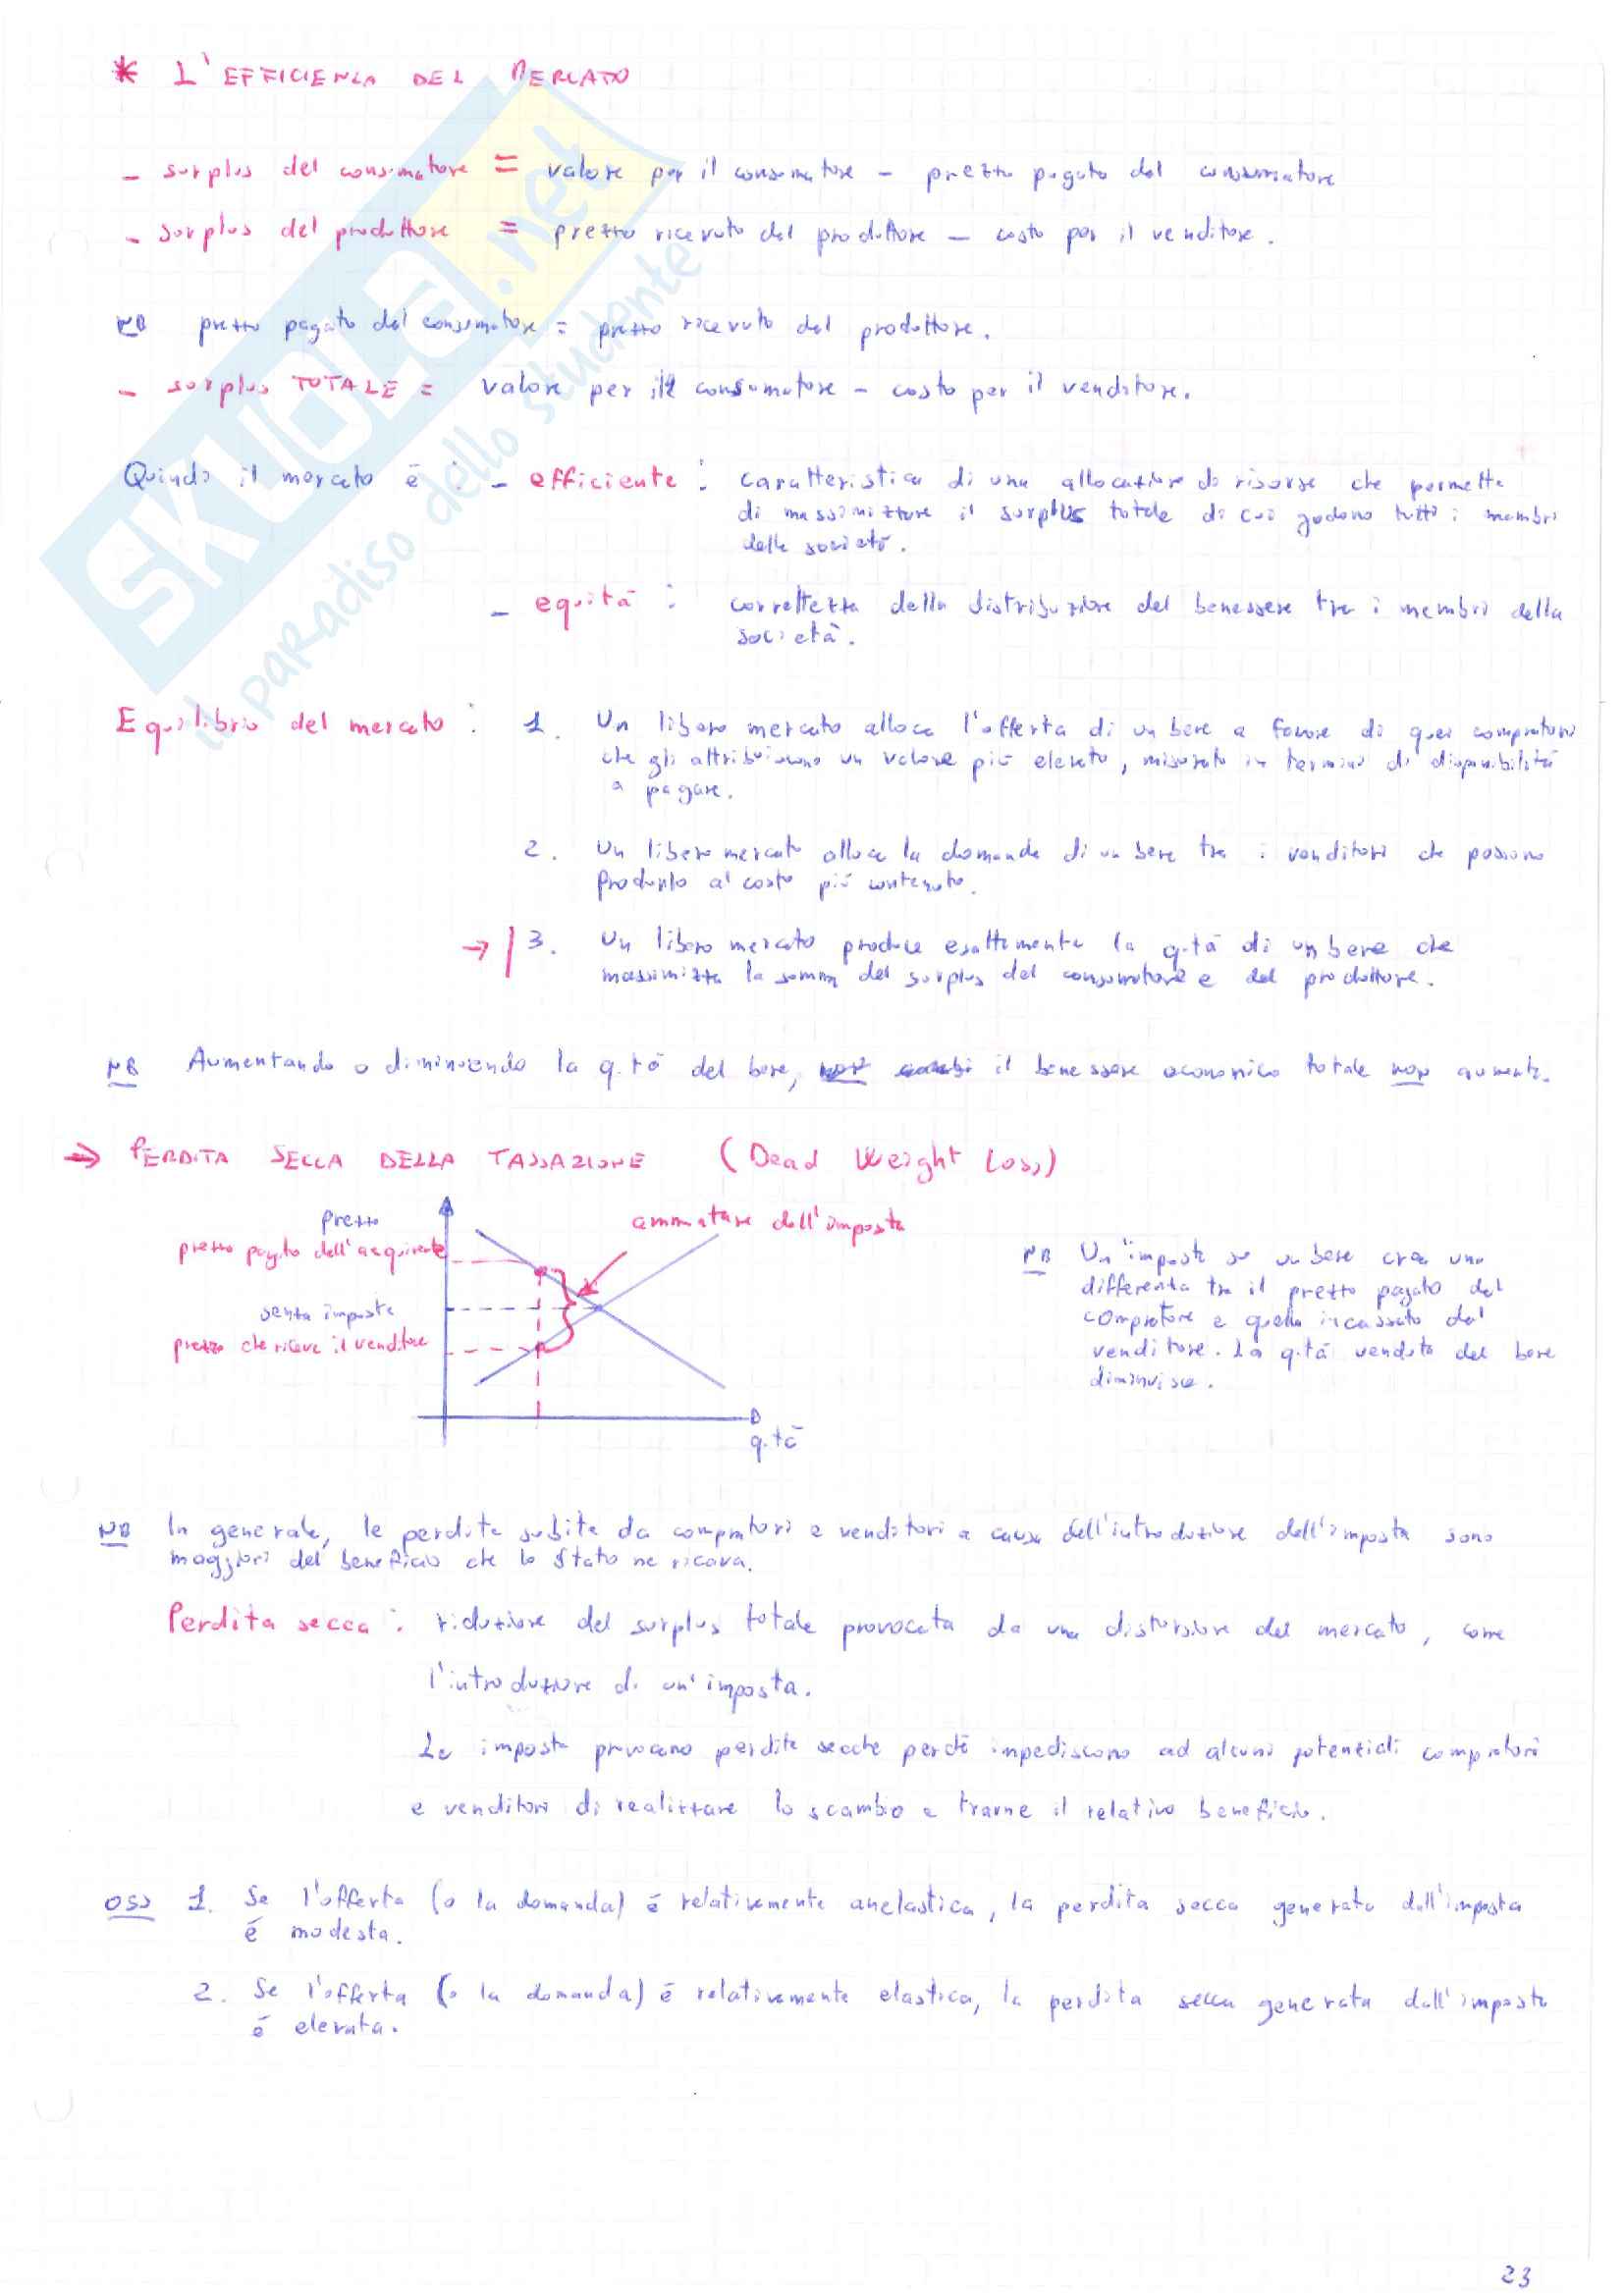 * L'EFFICIENZA DEL MERCATO
- surplus del consumatore = valore per il consumatore - prezzo pagato dal consumatore
- surplus del produttore = prezzo ricevuto dal produttore - costo per il venditore.
NB prezzo pagato dal consumatore = prezzo ricevuto dal produttore.
- surplus TOTALE = valore per il consumatore - costo per il venditore.
Quindi il mercato è : - efficiente : caratteristica di una allocazione di risorse che permette
di massimizzare il surplus totale di cui godono tutti i membri
della società.
- equità : correttezza della distribuzione del benessere tra i membri della
società.
Equilibrio del mercato : 1. Un libero mercato alloca l'offerta di un bene a favore di quei compratori
che gli attribuiscono un valore più elevato, misurato in termini di disponibilità
a pagare.
2. Un libero mercato alloca la domanda di un bene tra i venditori che possono
produrlo al costo più contenuto.
→ | 3. Un libero mercato produce esattamente la q.tà di un bene che
massimizza la somma del surplus del consumatore e del produttore.
NB Aumentando o diminuendo la q.tà del bene, il benessere economico totale non aumenta.
→ PERDITA SECCA DELLA TASSAZIONE (Dead Weight Loss)
prezzo
ammontare dell'imposta
prezzo pagato dall'acquirente
senza imposta
prezzo che riceve il venditore
q.tà
NB Un'imposta su un bene crea una
differenza tra il prezzo pagato dal
compratore e quello incassato dal
venditore. La q.tà venduta del bene
diminuisce.
NB In generale, le perdite subite da compratori e venditori a causa dell'introduzione dell'imposta sono
maggiori del beneficio che lo Stato ne ricava.
Perdita secca : riduzione del surplus totale provocata da una distorsione del mercato, come
l'introduzione di un'imposta.
Le imposte provocano perdite secche perché impediscono ad alcuni potenziali compratori
e venditori di realizzare lo scambio e trarne il relativo beneficio.
OSS 1. Se l'offerta (o la domanda) è relativamente anelastica, la perdita secca generata dall'imposta
è modesta.
2. Se l'offerta (o la domanda) è relativamente elastica, la perdita secca generata dall'imposta
è elevata.
23
SKUOLA.net
il paradiso dello studente